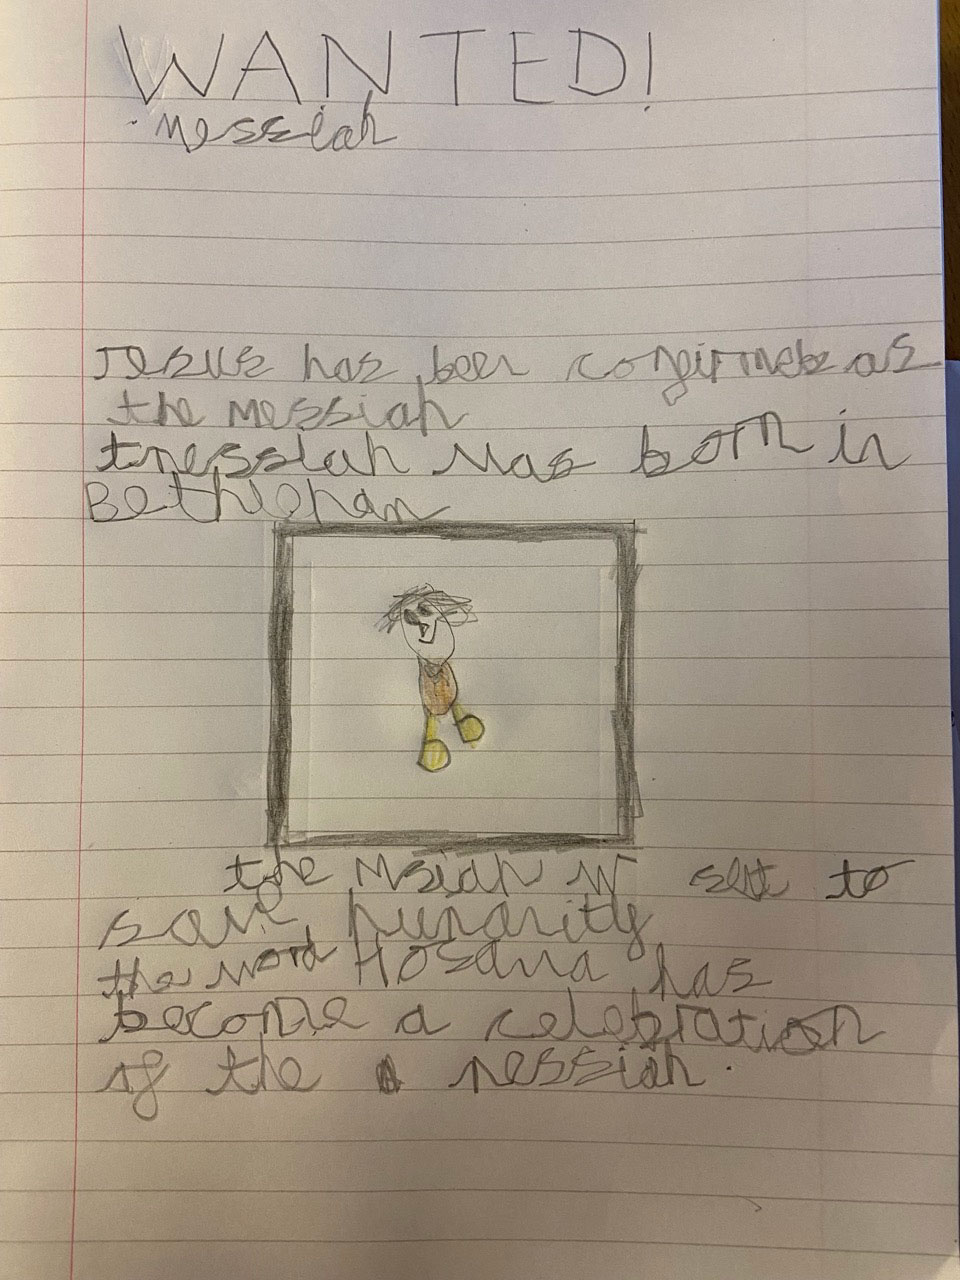 WANTED!
Messiah
Jesus has been confirmed as
the Messiah
Messiah was born in
Bethlehan
the Msiah is set to
save humanity
the word Hosana has
become a celebration
of the nessiah.